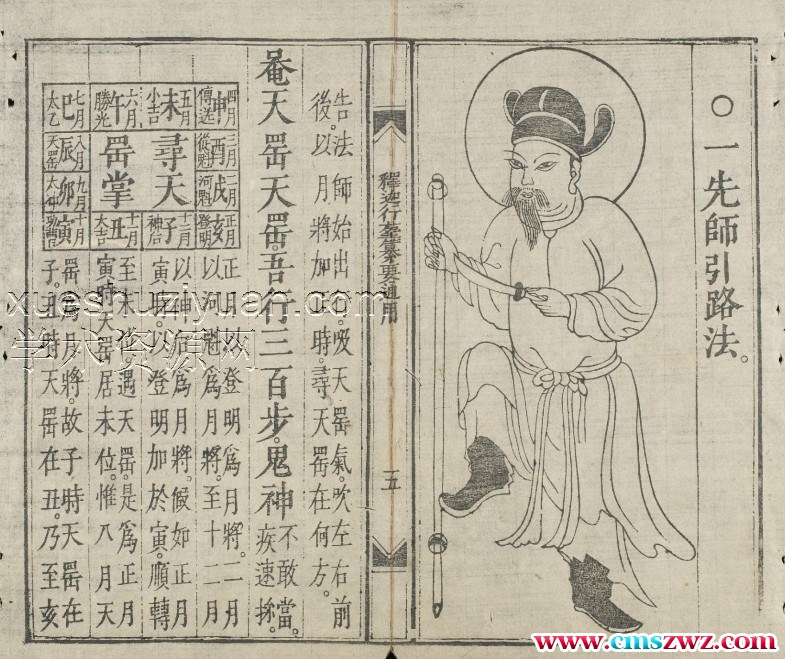 ○一先師引路法。
釋迦行要通用
五
告法師始出行。吸天罡氣。吹左右前
後。以月將加正時。尋天罡在何方。
奄天罡天罡。吾行三百步。鬼神
不敢當。
疾速
四月申傳送
五月未小吉
六月午勝光
七月巳太乙
三月酉從魁
尋天
罡掌
八月辰天罡
二月戌河魁
九月卯太
正月亥登明
十二月子神后
十一月丑大吉
十月寅
正月以登明爲月將。二月
以河魁爲月將。至十二月
以神后爲月將。候如正月
寅時。以登明加於寅。順轉
至未位。遇天罡。是爲正月
寅時天罡居未位。惟八月天
罡爲月將。故子時天罡在
子。丑時天罡在丑。乃至亥
xueshuziyuan.com
学术资源网
www.cmszwz.com